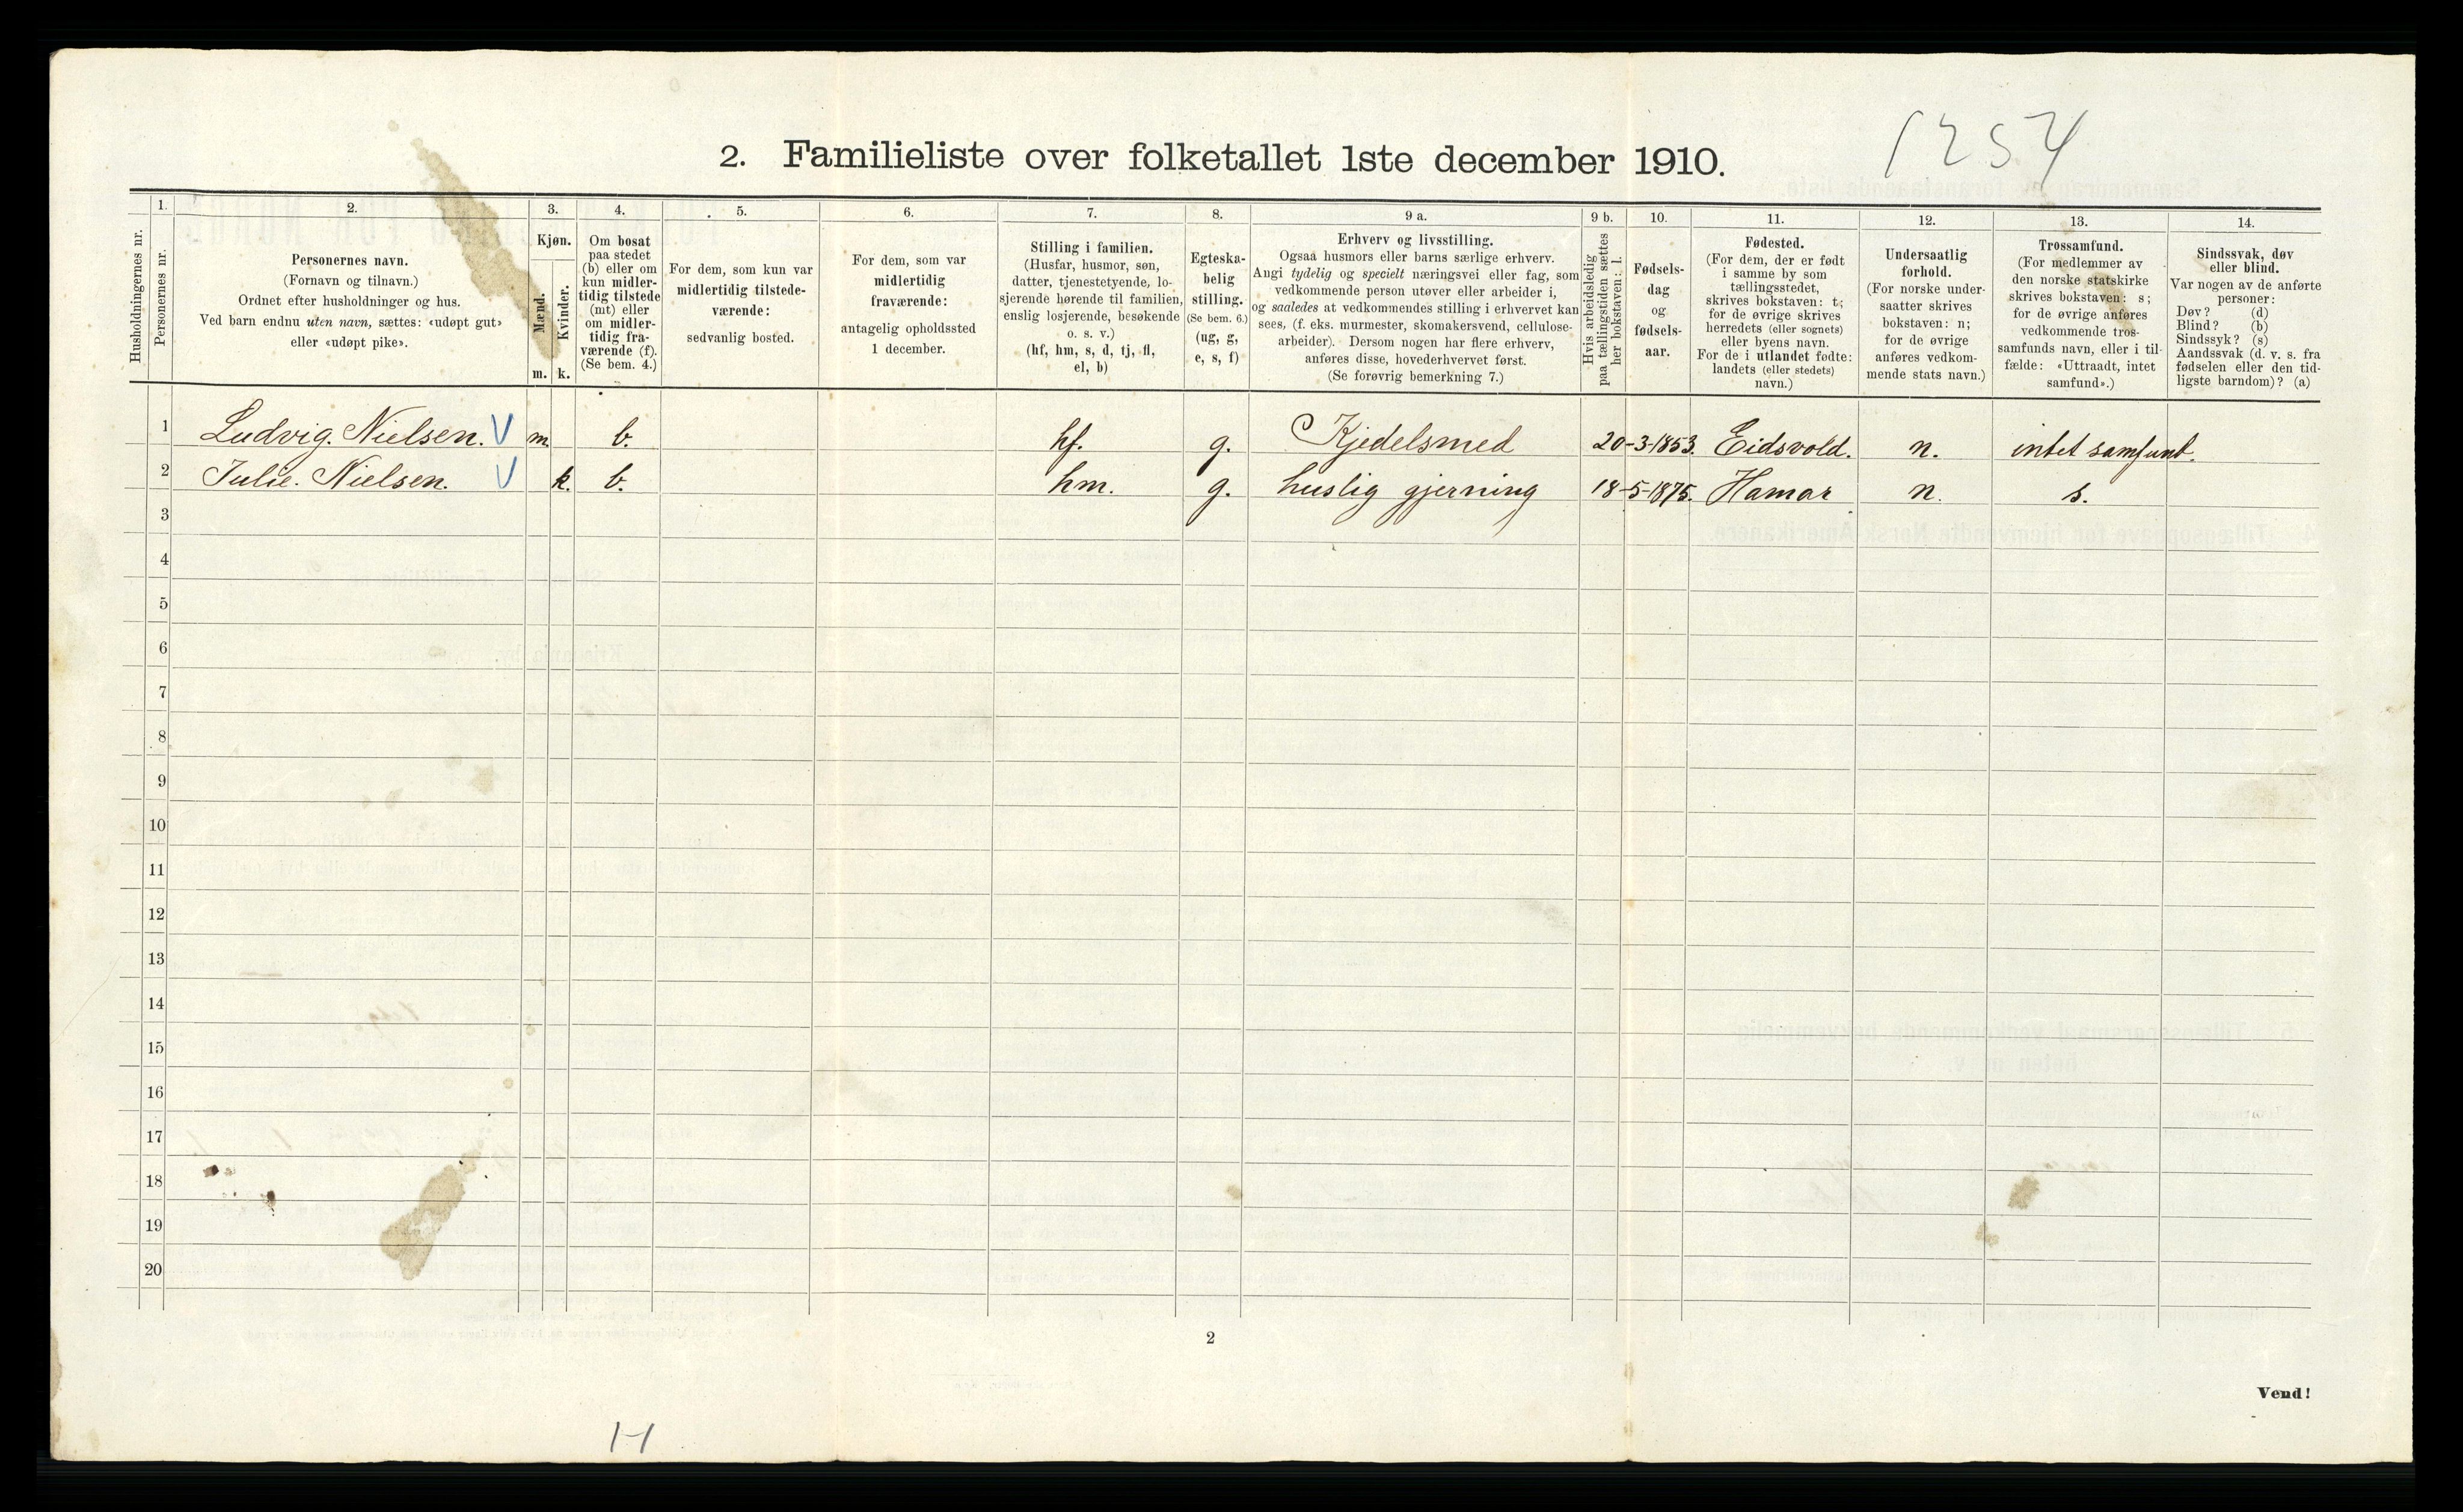 1254
2. Familieliste over folketallet 1ste december 1910.
Husholdningernes nr.
1.
Personernes nr.
2.
Personernes navn.
(Fornavn og tilnavn.)
Ordnet efter husholdninger og hus.
Ved barn endnu uten navn, sættes: «udøpt gut»
eller «udøpt pike».
3.
Kjøn.
Mænd.
Kvinder.
m. k.
4.
Om bosat
paa stedet
(b) eller om
kun midler-
tidig tilstede
(mt) eller
om midler-
tidig fra-
værende (f).
(Se bem. 4.)
5.
For dem, som kun var
midlertidig tilstede-
værende:
sedvanlig bosted.
6.
For dem, som var
midlertidig
fraværende:
antagelig opholdssted
1 december.
7.
Stilling i familien.
(Husfar, husmor, søn,
datter, tjenestetyende, lo-
sjerende hørende til familien,
enslig losjerende, besøkende
o. s. v.)
(hf, hm, s, d, tj, fl,
el, b)
8.
Egteska-
belig
stilling.
(Se bem. 6.)
(ug, g,
e, s, f)
9 a.
Erhverv og livsstilling.
Ogsaa husmors eller barns særlige erhverv.
Angi tydelig og specielt næringsvei eller fag, som
vedkommende person utøver eller arbeider i,
og saaledes at vedkommendes stilling i erhvervet kan
sees, (f. eks. murmester, skomakersvend, cellulose-
arbeider). Dersom nogen har flere erhverv,
anføres disse, hovederhvervet først.
(Se forøvrig bemerkning 7.)
9 b.
Hvis arbeidsledig
paa tællingstiden sættes
her bokstaven: l.
10.
Fødsels-
dag
og
fødsels-
aar.
11.
Fødested.
(For dem, der er født
i samme by som
tællingsstedet,
skrives bokstaven: t;
for de øvrige skrives
herredets (eller sognets)
eller byens navn.
For de i utlandet fødte:
landets (eller stedets)
navn.)
12.
Undersaatlig
forhold.
(For norske under-
saatter skrives
bokstaven: n;
for de øvrige
anføres vedkom-
mende stats navn.)
13.
Trossamfund.
(For medlemmer av
den norske statskirke
skrives bokstaven: s;
for de øvrige anføres
vedkommende tros-
samfunds navn, eller i til-
fælde: «Uttraadt, intet
samfund».)
14.
Sindssvak, døv
eller blind.
Var nogen av de anførte
personer:
Døv? (d)
Blind? (b)
Sindssyk? (s)
Aandssvak (d. v. s. fra
fødselen eller den tid-
ligste barndom)? (a)
1 Ludvig. Nielsen. V m. b. hf. g. Kjedelsmed 20-3-1853. Eidsvold. n. intet samfund.
2 Julie. Nielsen. V k. b. hm. g. huslig gjerning 18-5-1875. Hamar n. s.
3
4
5
6
7
8
9
10
11
12
13
14
15
16
17
18
19
20
2
Vend!
H